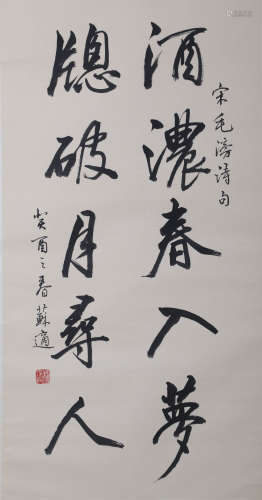 宋毛滂詩句
酒濃春入夢
牕破月尋人
癸酉之春蘇適